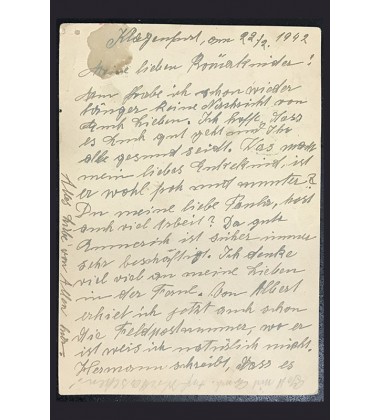 Klagenfurt, am 22/2. 1942
Meine lieben
Nun habe ich schon wieder
länger keine Nachricht von
Euch Lieben. Ich hoffe, dass
es Euch gut geht und Ihr
alle gesund seid. Was macht
mein liebes Enkelkind, ist
er wohl froh und munter?
Du meine liebe hast
auch viel Arbeit? Da gute
ist sicher immer
sehr beschäftigt. Ich denke
viel viel an meine Lieben
in der Ferne. Von Albert
erhielt ich jetzt auch schon
die Feldpostnummer, wo er
ist weis ich natürlich nicht.
Hermann schreibt, dass es
Alles Gute von Allen